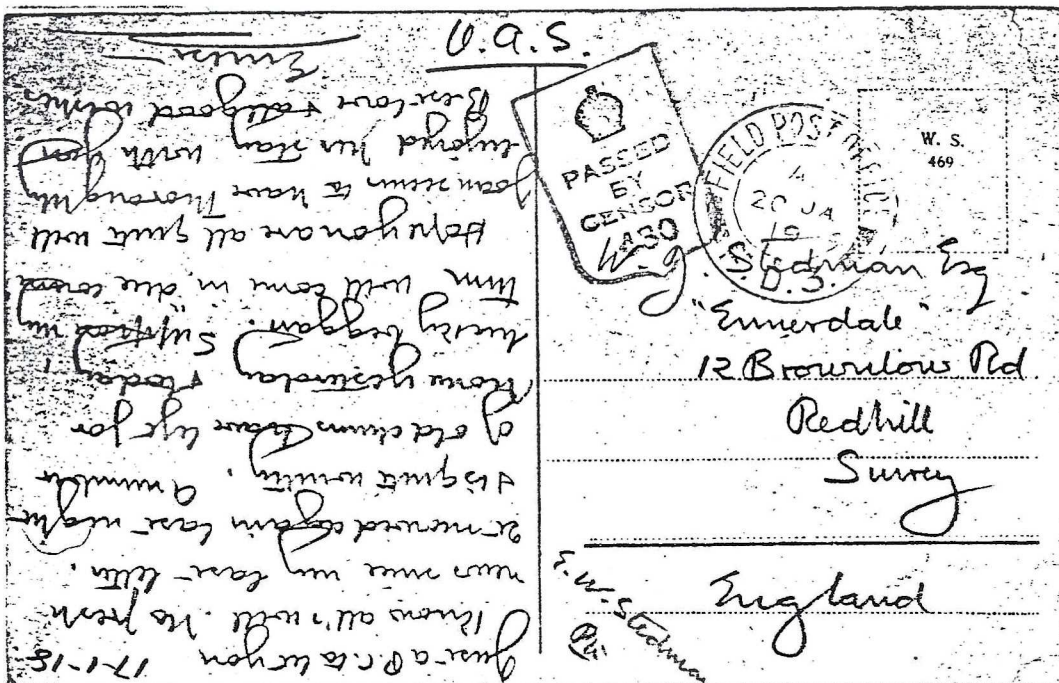 O.A.S.
PASSED
BY
CENSOR
A30
FIELD POST OFFICE
A
20 JA
19
D.3.
W. S.
469
Stedman Esq
"Ennerdale"
12 Brownlow Rd
Redhill
Surrey
England
E. W. Stedman
Just a P.C. to let you
know all's well. No fresh
news since my last letter.
It snowed again last night
& is quite wintry. A number
of old chums have left for
home yesterday & today,
lucky beggars. Suppose my
turn will come in due course
Hope you are all quite well
Joan seems to have thoroughly
enjoyed her stay with you
Best love & all good wishes